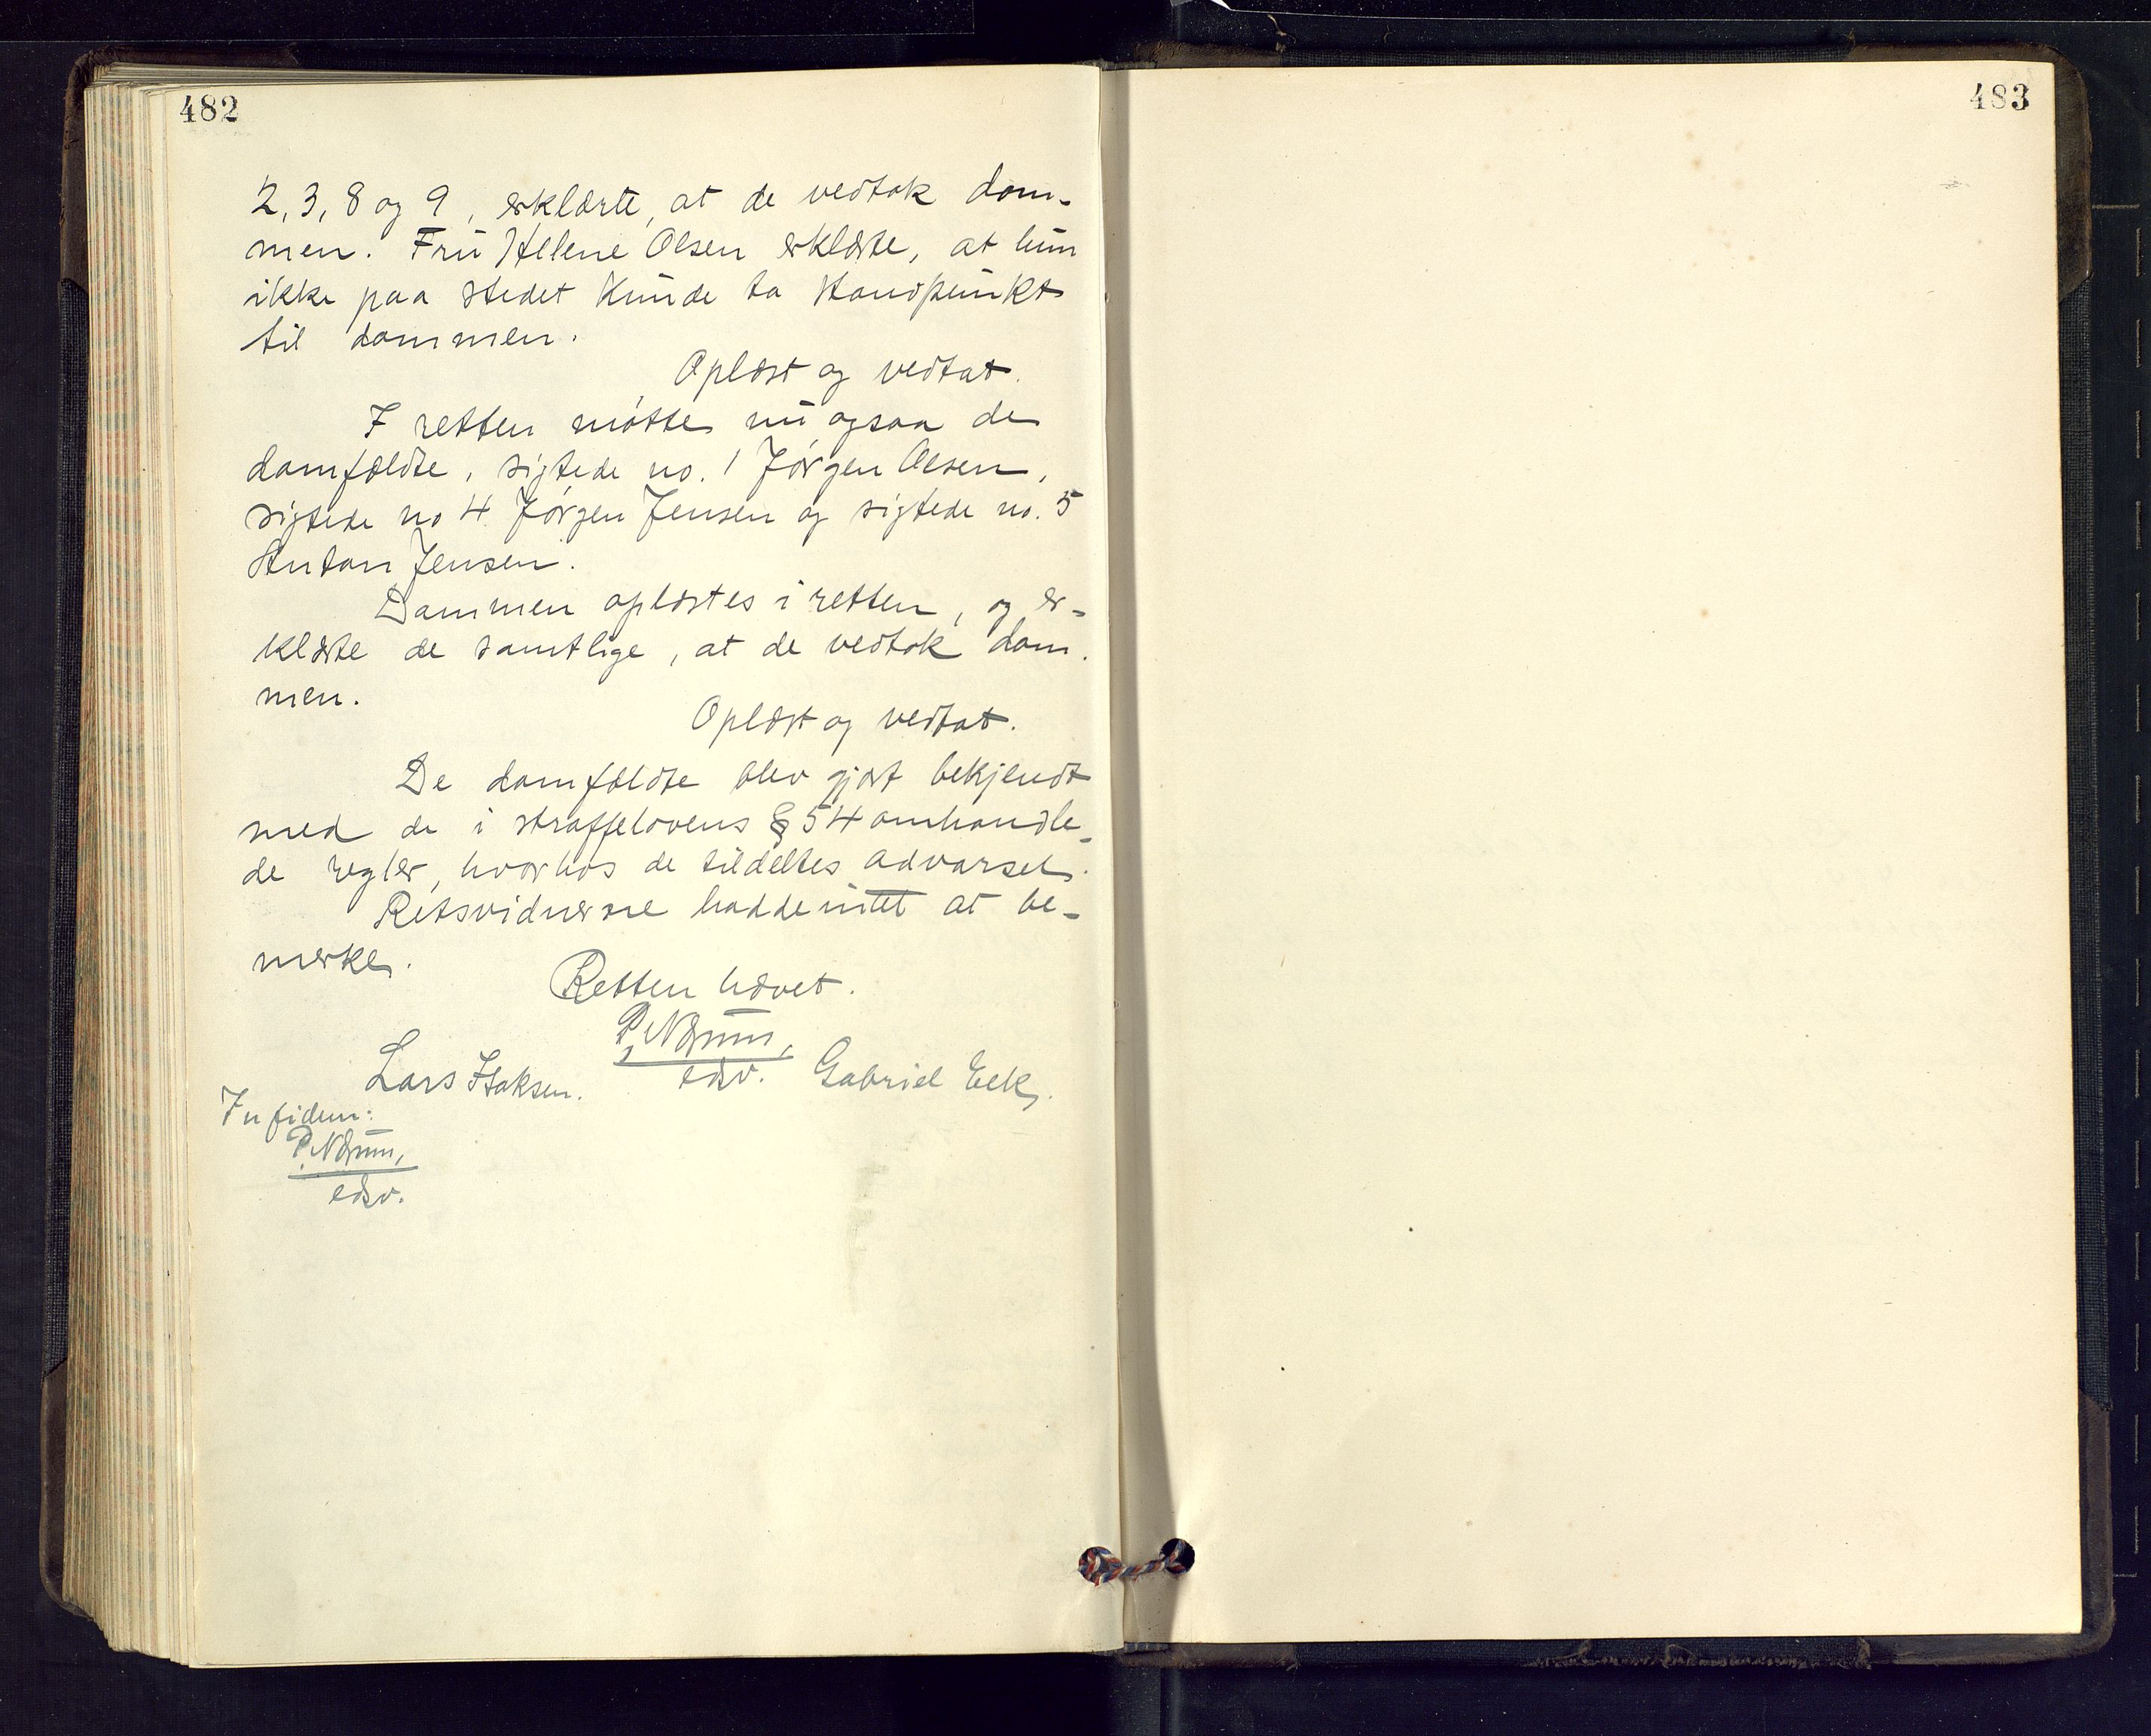 482
2, 3, 8 og 9, erklærte, at de vedtok dom-
men. Fru Hellene Olsen erklærte, at hun
ikke paa stedet kunde ta standpunkt
til dommen.
Oplæst og vedtat.
I retten møtte nu ogsaa de
domfældte, sigtede no. 1 Jørgen Olsen,
sigtede no 4 Jørgen Jensen og sigtede no. 5
Anton Jensen.
Dommen oplæstes i retten, og er-
klærte de samtlige, at de vedtok dom-
men.
Oplæst og vedtat.
De domfældte blev gjort bekjendt
med de i straffelovens § 54 omhandle-
de regler, hvorhos de tildeltes advarsel.
Retsvidnerne hadde intet at be-
merke.
Retten hævet.
P. Nærum,
edsv.
Lars Isaksen. Gabriel Eek.
In fidem:
P. Nærum,
edsv.
483